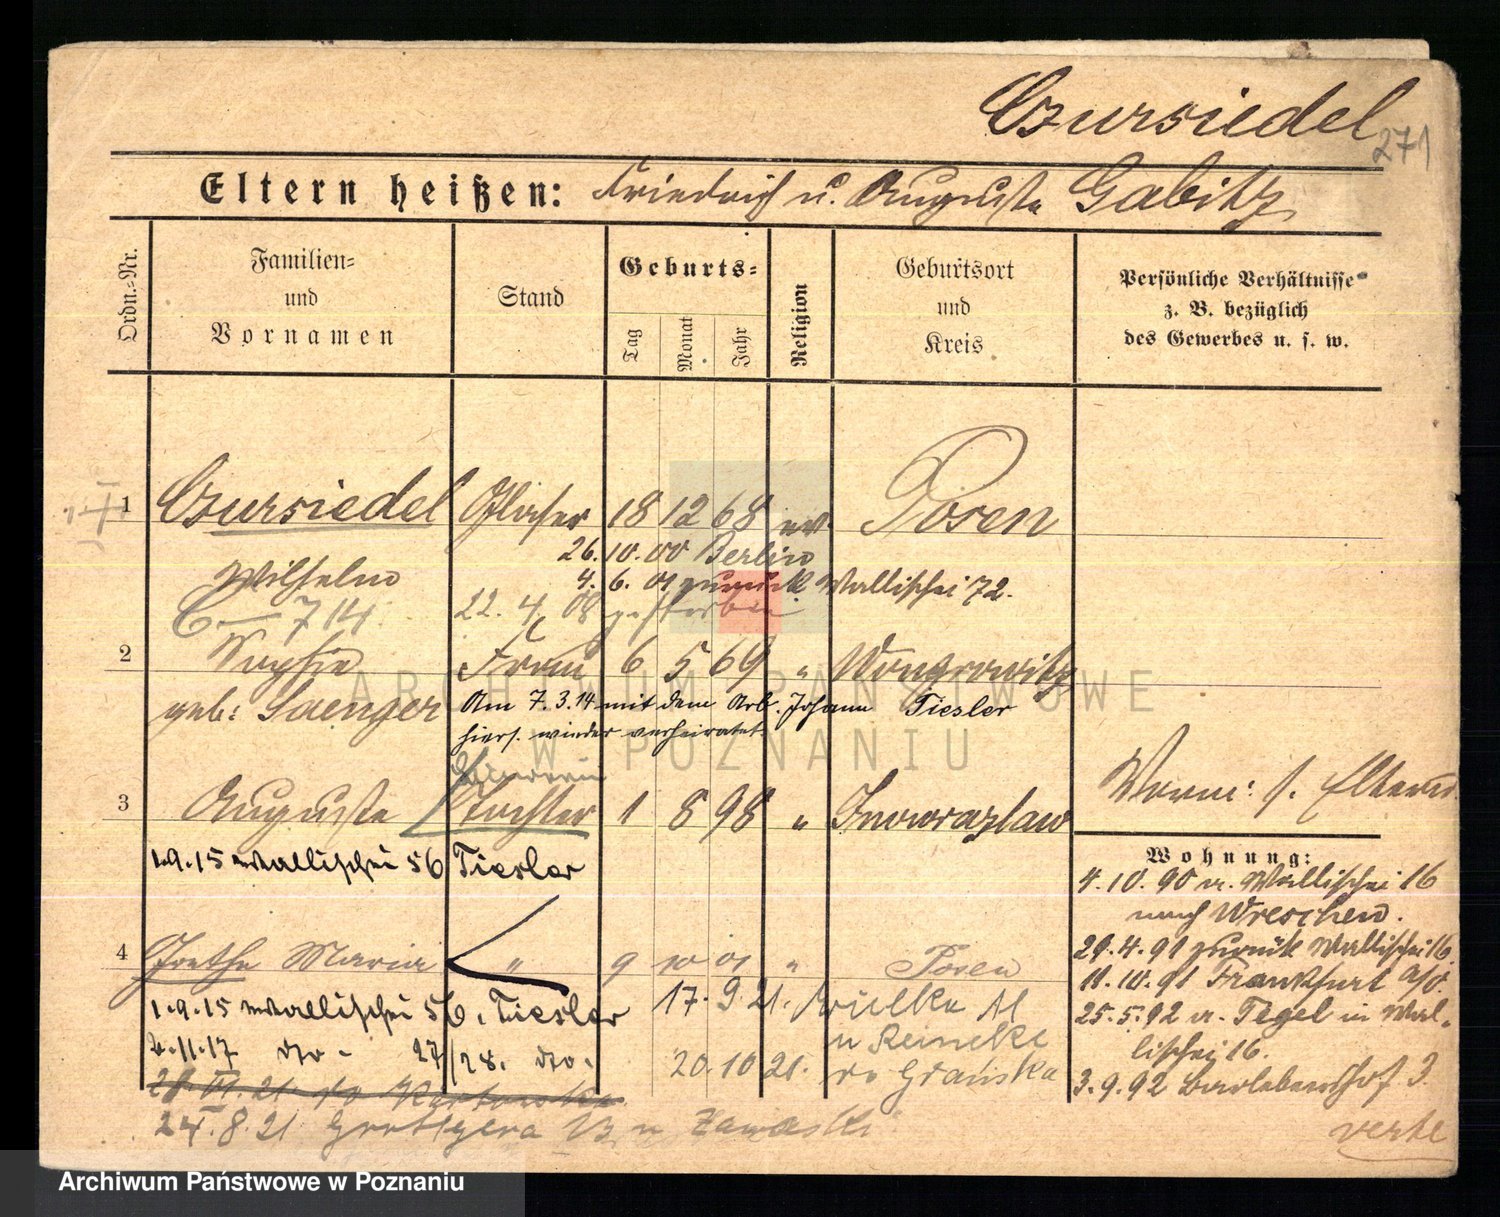 Czursiedel
271
Eltern heißen: Friedrich u. Auguste Gabitz
Ordn.-Nr.
Familien- und Vornamen
Stand
Geburts-
Tag
Monat
Jahr
Religion
Geburtsort und Kreis
Persönliche Verhältnisse z. B. bezüglich des Gewerbes u. s. w.
1 Czursiedel Glaser 18 12 68 ev. Posen
26.10.00 Berlin
Wilhelm 4. 6. 01 zurück Wallischei 72.
C 714 22. 4. 08 gestorben
2 Sophie Frau 6 5 69 " Wongrowitz
geb: Saenger Am 7.3.14 mit dem Arb. Johann Tiesler
hiers. wieder verheiratet
3 Auguste Tochter 1 8 98 " Inowrazlaw
1.9.15 Wallischei 56 Tiesler
4 Grethe Maria " 9 10 01 " Posen
1.9.15 Wallischei 56. Tiesler 17. 9 21. Wielka
2.11.17 do - 27/28. do. u Reineke
20. 10 21.
24. 8. 21 Grottgera
Verm: s. Eltern
Wohnung:
4.10.90 v. Wallischei 16
nach Wreschen.
29.4.91 zurück Wallischei 16.
11.10.91 Frankfurt a/O.
25.5.92 v. Tegel in Wal-
lischei 16.
3.9.92 3.
verte
ARCHIWUM PAŃSTWOWE
W POZNANIU
Archiwum Państwowe w Poznaniu